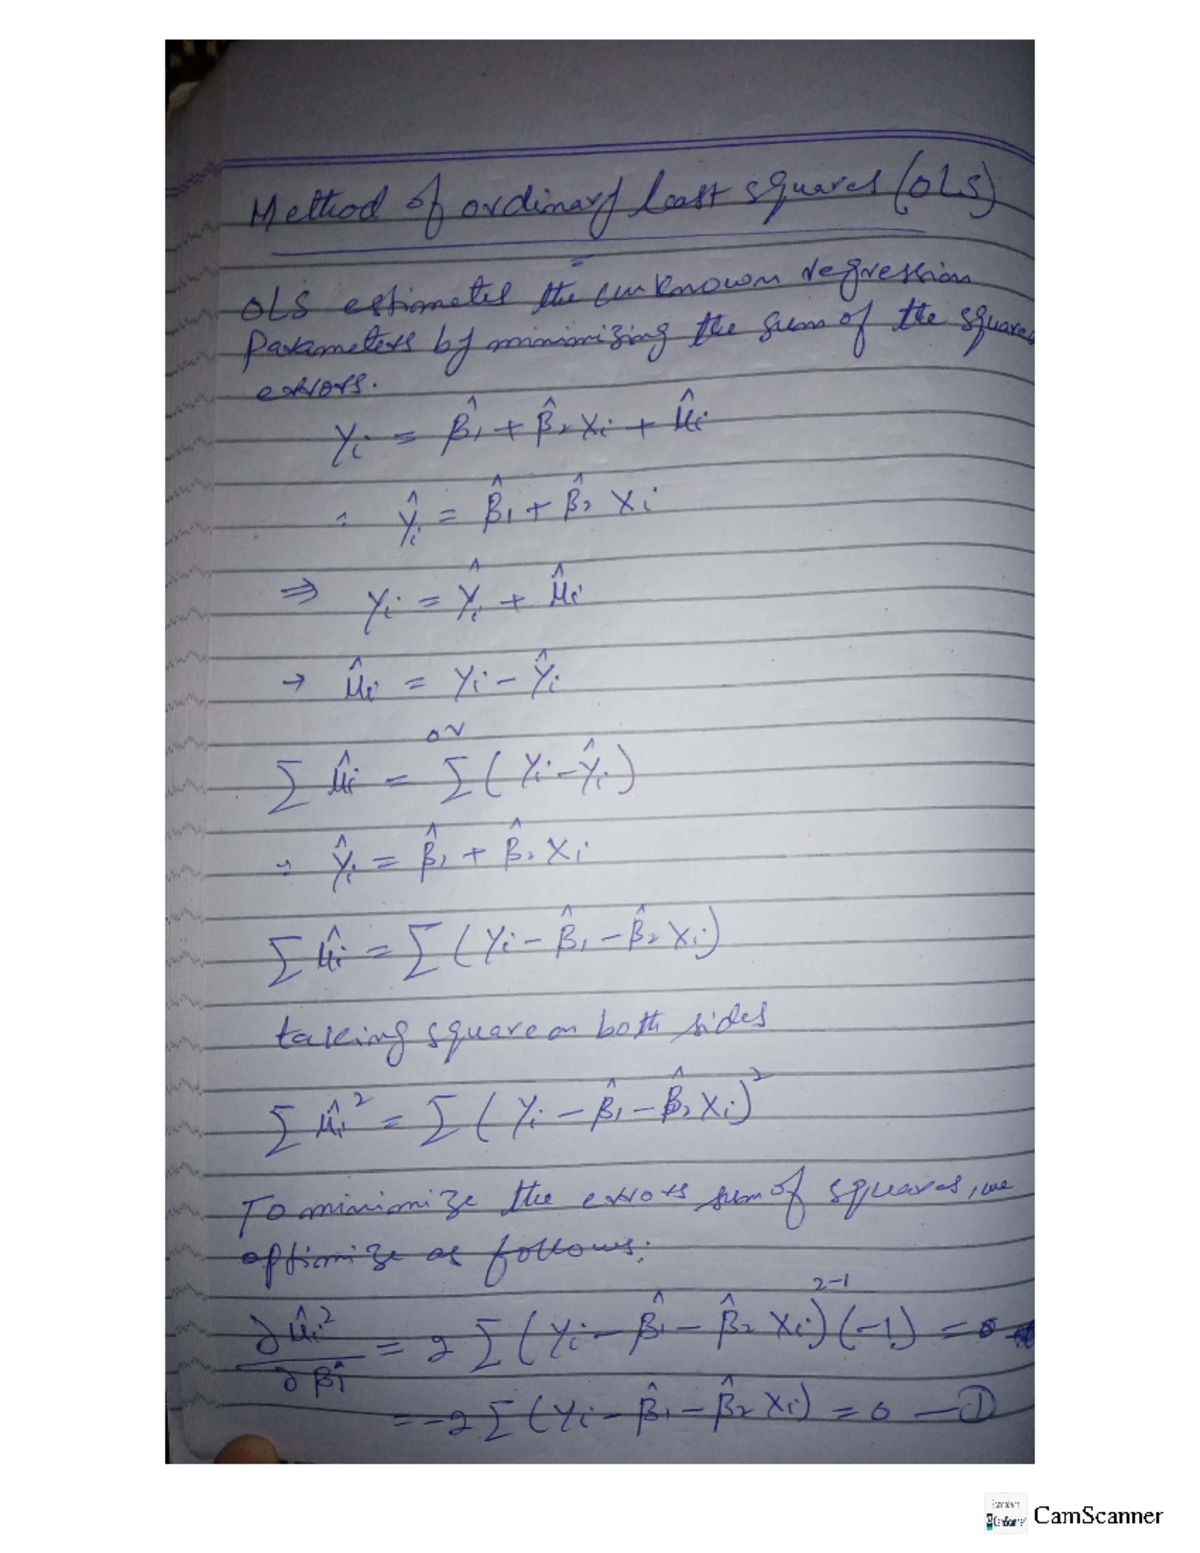 Method of ordinary least squares (OLS)
OLS estimates the unknown regression
Parameters by minimizing the sum of the squares
errors.
Yi = β̂1 + β̂2 Xi + μ̂i
∴ Ŷi = β̂1 + β̂2 Xi
⇒ Yi = Ŷi + μ̂i
→ μ̂i = Yi - Ŷi
or
Σ μ̂i = Σ ( Yi - Ŷi )
∵ Ŷi = β̂1 + β̂2 Xi
Σ μ̂i = Σ ( Yi - β̂1 - β̂2 Xi )
taking square on both sides
Σ μ̂i² = Σ ( Yi - β̂1 - β̂2 Xi )²
To minimize the errors sum of squares, we
optimize as follows:
∂ μ̂i² / ∂ β̂1 = 2 Σ ( Yi - β̂1 - β̂2 Xi )²⁻¹ (-1) = 0
= -2 Σ ( Yi - β̂1 - β̂2 Xi ) = 0 — ①
CamScanner